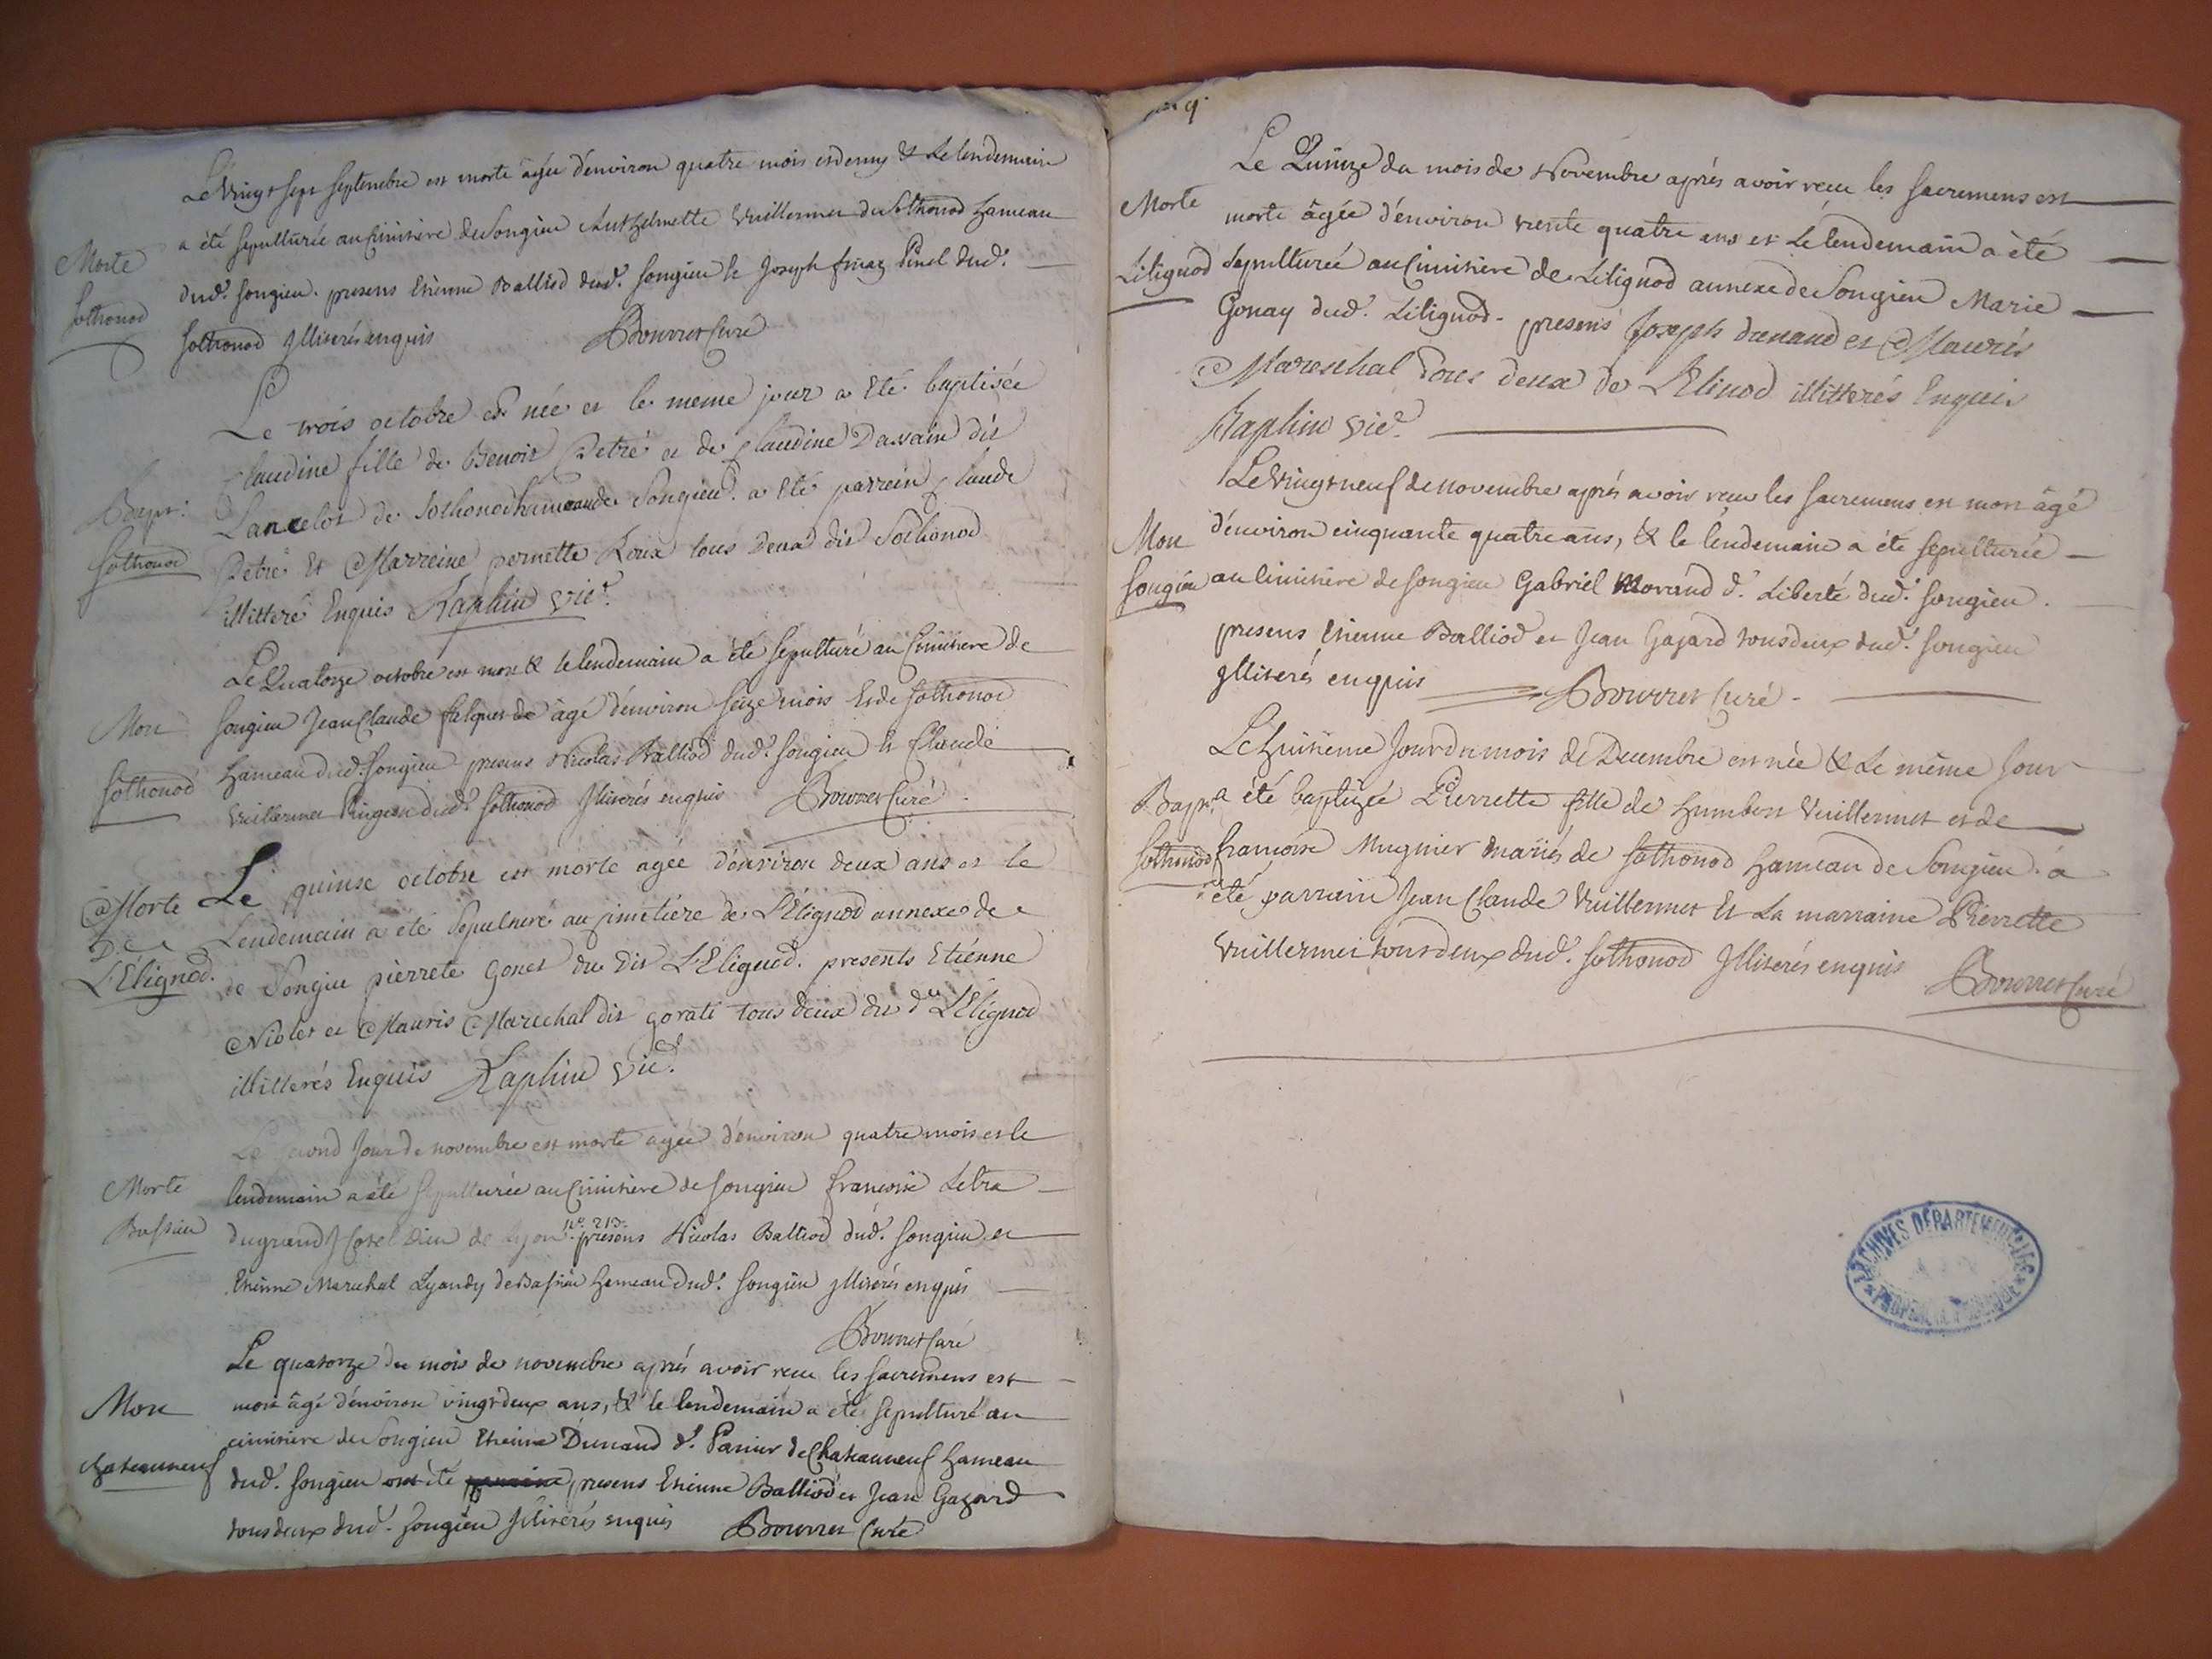 Le Vingt sept septembre est morte âgée d'environ quatre mois et demy & Le lendemain
a été sepulturée au Cimitière de Songieu Anthelmette Vuillermet de Sothonod hameau
Morte
Sothonod
dud.t Songieu. presens Etienne Balliod dud.t Songieu & Joseph Pinel dud.t
Sothonod Illiterés enquis Bourret Curé
Le trois octobre est née et le meme jour a été baptisée
Claudine fille de Benoit Petré et de Claudine Dassain dit
Bapt.
Sothonod
Lancelot de Sothonod hameau de Songieu. a été parrein Claude
Petré Et Marreine pernette Roux tous deux dit Sothonod
illitteré Enquis Raphin vic.e
Le Quatorze octobre est mort & le lendemain a été sepulturé au Cimitiere de
Mort
Sothonod
Songieu Jean Claude falquet de âge d'environ seize mois Et de Sothonod
hameau dud.t Songieu presens Nicolas Balliod dud.t Songieu & Claude
Vuillermet dud.t Sothonod Illiterés enquis Bourret Curé
Morte
De
L'Élignod.
Le quinse octobre est morte agée d'environ deux ans et le
Lendemain a été Sepulturé au cimetiére de L'Élignod annexe de
de Songieu pierrete Gonet du dit L'Elignod. presents Etiénne
Violet et Mauris Marechal dit gorati tous deux du d.t L'Élignod
illiterés Enquis Raphin vic.e
Le second Jour de novembre est morte agée d'environ quatre mois et le
Morte
Bassieu
lendemain a été sepulturée au Cimitière de Songieu françoise Letra
du grand Hotel Dieu de Lyon n.o 213. presens Nicolas Balliod dud.t Songieu et
Etienne Marechal Lyandy de Bassieu hameau dud.t Songieu Illiterés enquis
Bourret Curé
Le quatorze du mois de novembre après avoir reçu les sacremens est
Mort
Chateauneuf
mort âgé d'environ vingt deux ans, & le lendemain a été sepulturé au
cimitière de Songieu Etienne Dunand d.t Panier de Chateauneuf hameau
dud.t Songieu ont été presens Etienne Balliod et Jean Gazard
tous deux dud.t Songieu Illiterés enquis Bourret Curé
9.
Le Quinze du mois de Novembre après avoir reçu les sacremens est
Morte
Lilignod
morte âgée d'environ trente quatre ans et Le lendemain a été
sepulturée au Cimitière de Lilignod annexe de Songieu Marie
Gonay dud.t Lilignod. presens Joseph dunand et Mauris
Mareschal Tous deux de LElinod illitterés Enquis
Raphin vic.e
Le Vingt neuf de novembre après avoir reçu les sacremens est mort âgé
Mort
Songieu
d'environ cinquante quatre ans, & le lendemain a été sepulturée
au cimitière de Songieu Gabriel Morand d.t Liberté dud.t Songieu.
presens Etienne Balliod et Jean Gazard tous deux dud.t Songieu
Illiterés enquis Bourret Curé.
Le huitième Jour du mois de Decembre est née & Le même Jour
Bapt.
Sothonod
a été baptizée Pierrette fille de humbert Vuillermet et de
françoise Mugnier mariés de Sothonod hameau de Songieu. a
été parrain Jean Claude Vuillermet Et La marraine Pierrette
Vuillermet tous deux dud.t Sothonod Illiterés enquis Bourret Curé
ARCHIVES DÉPARTEMENTALES